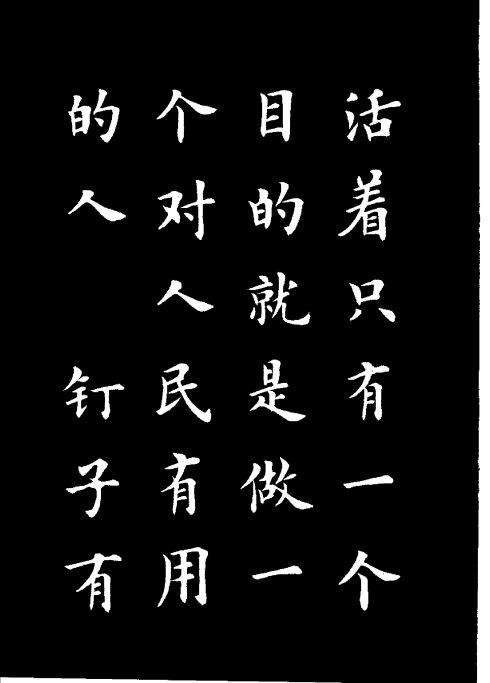 活着只有一个
目的就是做一
个对人民有用
的人 钉子有